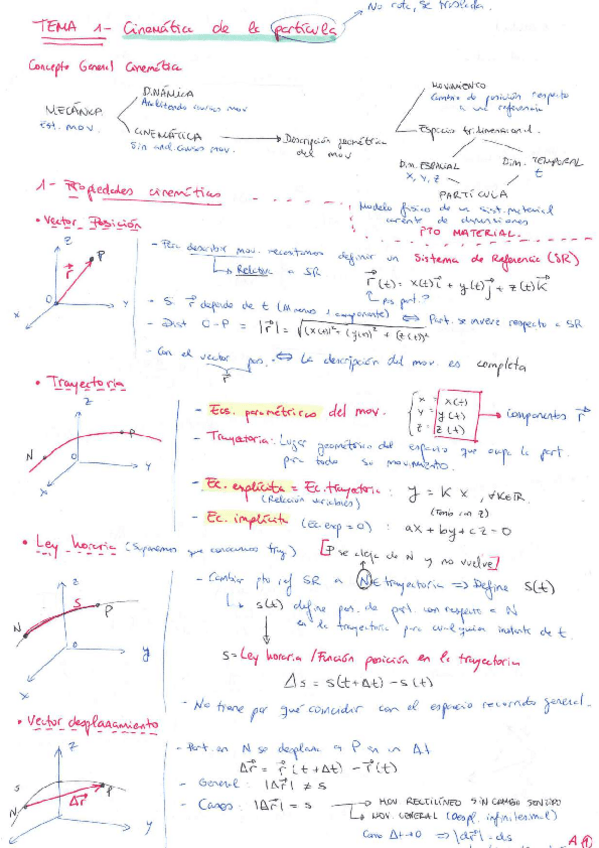 No rota, se traslada
TEMA 1- Cinemática de la partícula
Concepto General Cinemática
MECÁNICA
Est. mov.
DINÁMICA
Analizando causas mov
CINEMÁTICA
Sin anal. causas mov.
Descripción geométrica
del mov
MOVIMIENTO
Cambio de posición respecto
a una referencia
Espacio tridimensional.
Dim. ESPACIAL
X, Y, Z
Dim. TEMPORAL
t
PARTÍCULA
Modelo físico de un sist. material
carente de dimensiones
PTO MATERIAL.
1- Propiedades cinemáticas
• Vector Posición
Z
P
r⃗
O
Y
X
- Para describir mov. necesitamos definir un Sistema de Referencia (SR)
Relativo a SR
r⃗(t) = x(t)i⃗ + y(t)j⃗ + z(t)k⃗
pos part.?
- Si r⃗ depende de t (Al menos 1 componente) ⇔ Part. se mueve respecto a SR
- Dist O-P = |r⃗| = √(x(t))² + (y(t))² + (z(t))²
- Con el vector pos. ⇔ La descripción del mov es completa
r⃗
• Trayectoria
Z
P
N
O
Y
X
- Ecs. paramétricas del mov.
x = x(t)
y = y(t)
z = z(t)
componentes r⃗
- Trayectoria: Lugar geométrico del espacio que ocupa la part.
por todo su movimiento.
- Ec. explícita = Ec. trayectoria : y = K x , ∀K∈ℝ.
(Relación variables)
(Tamb con z)
- Ec. implícita (Ec. exp = 0) : ax + by + cz = 0
• Ley horaria (Suponemos que conocemos tray)
[P se aleja de N y no vuelve]
z
S
P
N
o
y
x
- Cambiar pto ref SR a N∈trayectoria ⇒ Define s(t)
s(t) define pos. de part con respecto a N
en la trayectoria para cualquier instante de t.
s = Ley horaria / Función posición en la trayectoria
Δs = s(t+Δt) - s(t)
- No tiene por qué coincidir con el espacio recorrido general.
• Vector desplazamiento
Z
S
P
N
Δr⃗
Y
X
- Part. en N se desplaza a P en un Δt
Δr⃗ = r⃗(t+Δt) - r⃗(t)
- General: |Δr⃗| ≠ s
- Casos: |Δr⃗| = s
MOV RECTILÍNEO SIN CAMBIO SENTIDO
MOV. GENERAL (Despl. infinitesimal)
Como Δt→0 ⇒ |dr⃗| = ds
A①